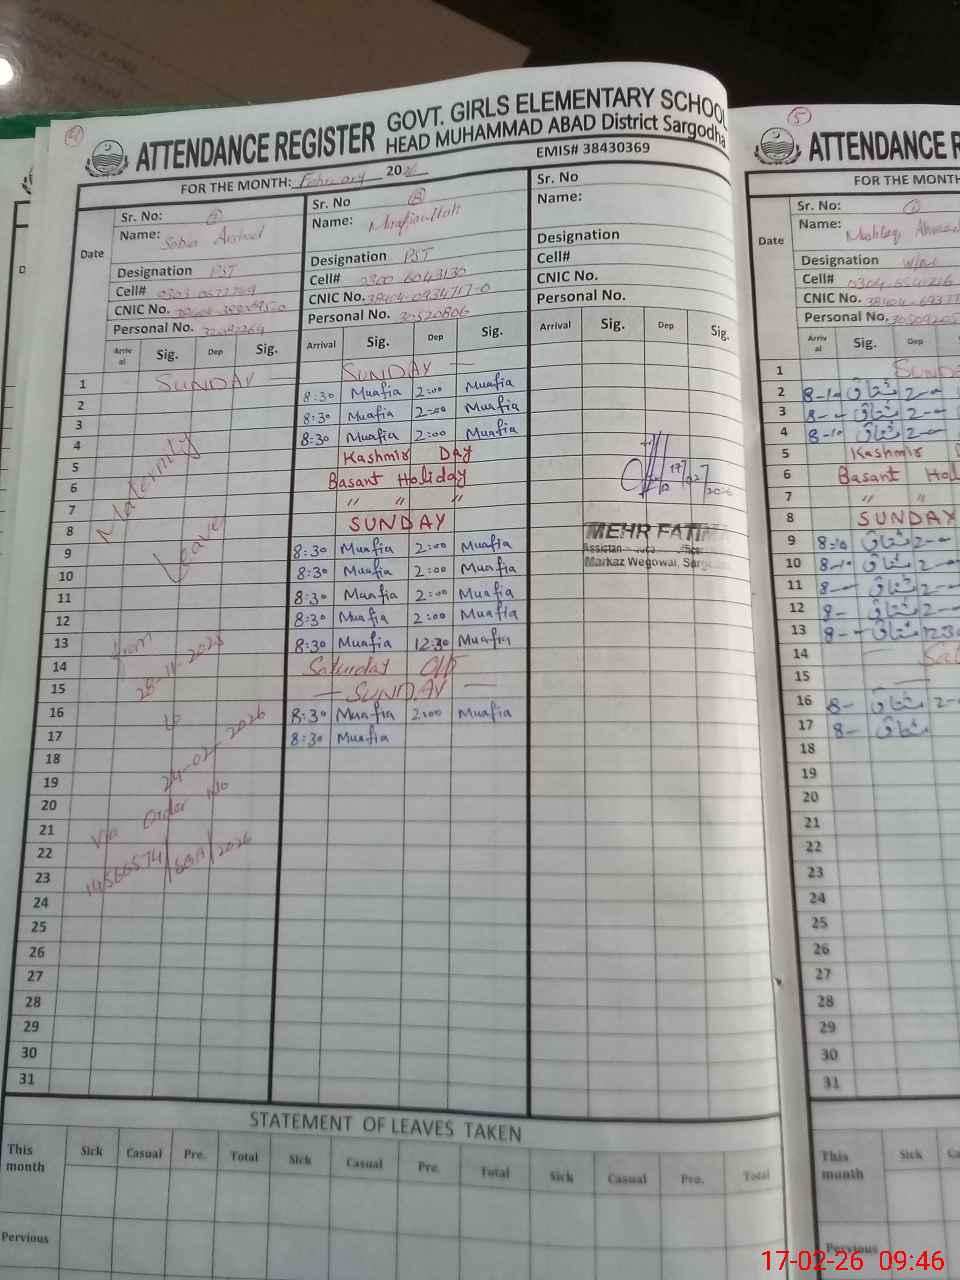 4
ATTENDANCE REGISTER
GOVT. GIRLS ELEMENTARY SCHOOL
HEAD MUHAMMAD ABAD District Sargodha
EMIS# 38430369
FOR THE MONTH: February 2026
Date
Sr. No:
Name: Sobia Arshad
Designation PST
Cell# 0303
CNIC No.
Personal No.
Arrival Sig. Dep Sig.
Sr. No
Name:
Designation PST
Cell# 0300 6043130
CNIC No. 38404-0934717-0
Personal No. 30520806
Arrival Sig. Dep Sig.
Sr. No
Name:
Designation
Cell#
CNIC No.
Personal No.
Arrival Sig. Dep Sig.
1 SUNDAY SUNDAY
2 8:30 Muafia 2:00 Muafia
3 8:30 Muafia 2:00 Muafia
4 8:30 Muafia 2:00 Muafia
5 Kashmir Day
6 Basant Holiday
7 " " "
8 SUNDAY
9 8:30 Muafia 2:00 Muafia
10 8:30 Muafia 2:00 Muafia
11 8:30 Muafia 2:00 Muafia
12 8:30 Muafia 2:00 Muafia
13 8:30 Muafia 12:30 Muafia
14 Saturday Off
15 SUNDAY
16 8:30 Muafia 2:00 Muafia
17 8:30 Muafia
18
19
20
21
22
23
24
25
26
27
28
29
30
31
Maternity
Leave
from
28-11-2025
to
24-02-2026
Via Order No
14566574/SBA/2026
17/02/2026
MEHR FATIMA
Markaz Wegowal,
STATEMENT OF LEAVES TAKEN
This month
Sick Casual Pre. Total Sick Casual Pre. Total Sick Casual Pre. Total
Pervious
5
ATTENDANCE R
FOR THE MONTH
Date
Sr. No:
Name: Mushtaq Ahmad
Designation
Cell#
CNIC No.
Personal No.
Arrival Sig. Dep
1 SUNDA
2 8-10 مشتاق 2-00
3 8- مشتاق 2-00
4 8-10 مشتاق 2-00
5 Kashmir
6 Basant Holi
7 " "
8 SUNDAY
9 8-10 مشتاق 2-00
10 8-10 مشتاق 2-00
11 8- مشتاق 2-00
12 8- مشتاق 2-00
13 8- مشتاق 12:30
14 Sat
15
16 8- مشتاق 2-00
17 8- مشتاق
18
19
20
21
22
23
24
25
26
27
28
29
30
31
This month
Sick Ca
Pervious
17-02-26 09:46